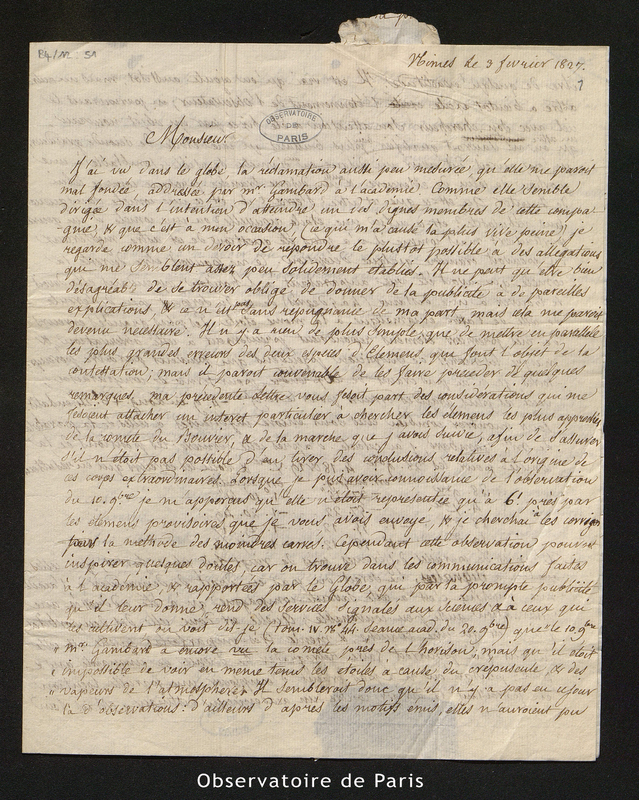 E4/12: 51
Nimes le 3 fevrier 1827.
OBSERVATOIRE DE PARIS
Monsieur
J'ai vu dans le globe la réclamation aussi peu mesurée, qu'elle me paroit
mal fondée addressée par mr. Gambard à l'académie Comme elle semble
dirigée dans l'intention d'atteindre un des dignes membres de cette compa-
gnie, & que c'est à mon occasion, (ce qui m'a causé la plus vive peine) je
regarde comme un devoir de répondre le plustot possible à des allegations
qui me semblent assez peu solidement etablies. Il ne part que etre bien
désagréable de se trouver obligé de donner de la publicité à de pareilles
explications, & ce n'est pas sans repugnance de ma part, mais cela me paroit
devenu nécessaire. Il n'y a rien de plus simple que de mettre en parallele
les plus grandes erreurs des deux especes d'Elemens, qui font l'objet de la
contestation; mais il paroit convenable de les faire preceder de quelques
remarques. ma précedente lettre vous fesoit part des considérations qui me
fesoient attacher un interet particulier à chercher les elemens les plus approchés
de la comete du Bouvier, & de la marche que j'avois suivie, afin de s'assurer
s'il n'etoit pas possible d'en tirer des conclusions relatives à l'origine de
ces corps extraordinaires. Lorsque je pus avoir connoissance de l'observation
du 10. 9bre je m'apperçus qu'elle n'etoit representée qu'à 6' près par
les elemens provisoires que je vous avois envoyé, & je cherchai à les corriger
par la methode des moindres carrés. Cependant cette observation pouvoit
inspirer quelques doutes, car on trouve dans les communications faites
à l'académie, & rapportées par le Globe, qui par la prompte publicité
qu'il leur donne, rend des services signalés aux sciences & à ceux qui
les cultivent on voit dis-je (tom. IV. No. 44. seance acad. du 20. 9bre) que le 10. 9bre
mr. Gambard a encore vu la comete près de l'horison, mais qu'il etoit
impossible de voir en meme tems les etoiles à cause du crépuscule & des
vapeurs de l'atmosphere. Il sembleroit donc qu'il n'y a pas eu ce jour
là d'observations: d'ailleurs d'après les motifs emis, elles n'auroient pu
Observatoire de Paris